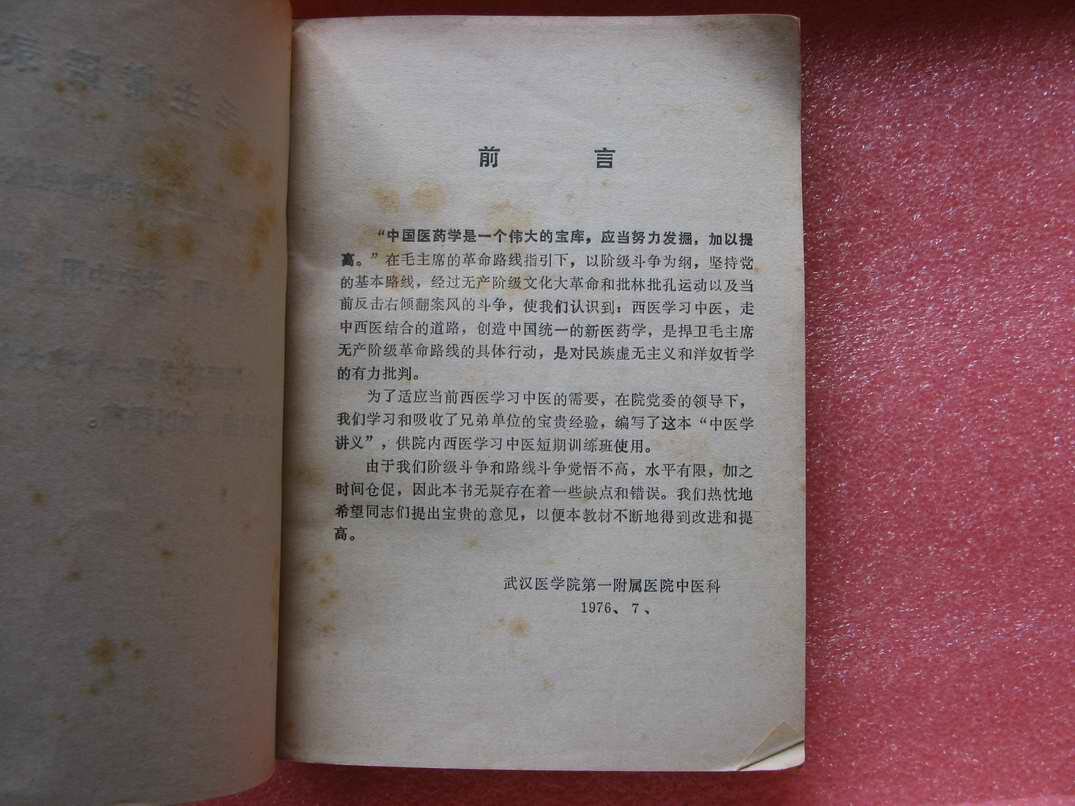 前言
“中国医药学是一个伟大的宝库，应当努力发掘，加以提
高。”在毛主席的革命路线指引下，以阶级斗争为纲，坚持党
的基本路线，经过无产阶级文化大革命和批林批孔运动以及当
前反击右倾翻案风的斗争，使我们认识到：西医学习中医，走
中西医结合的道路，创造中国统一的新医药学，是捍卫毛主席
无产阶级革命路线的具体行动，是对民族虚无主义和洋奴哲学
的有力批判。
为了适应当前西医学习中医的需要，在院党委的领导下，
我们学习和吸收了兄弟单位的宝贵经验，编写了这本“中医学
讲义”，供院内西医学习中医短期训练班使用。
由于我们阶级斗争和路线斗争觉悟不高，水平有限，加之
时间仓促，因此本书无疑存在着一些缺点和错误。我们热忱地
希望同志们提出宝贵的意见，以便本教材不断地得到改进和提
高。
武汉医学院第一附属医院中医科
1976、7、